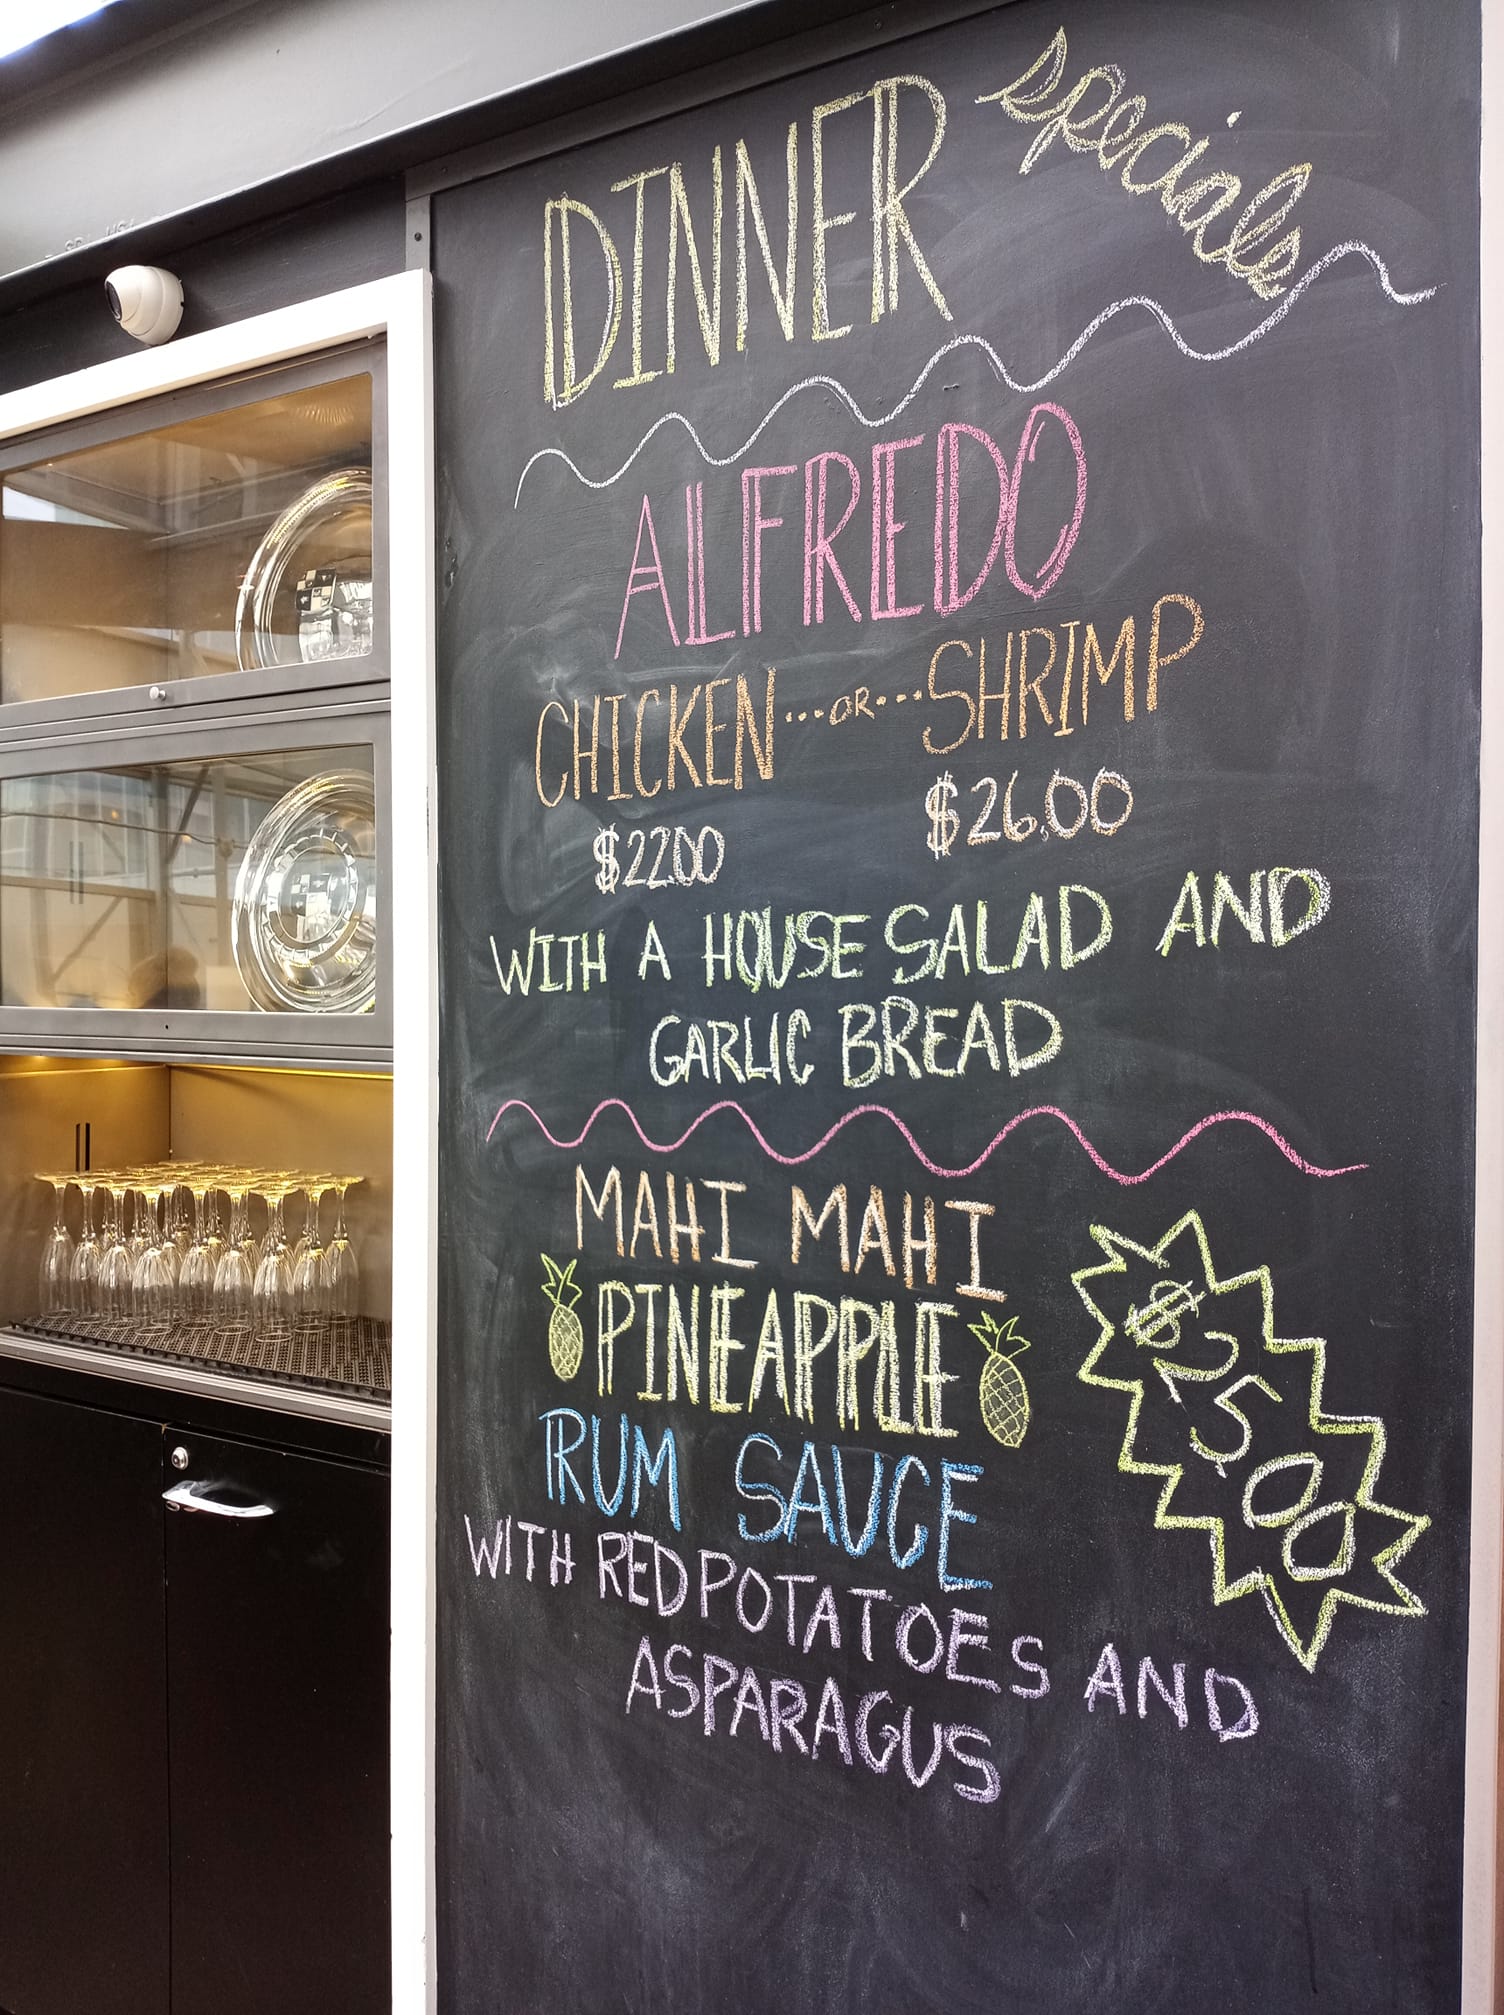 DINNER specials
ALFREDO
CHICKEN...OR...SHRIMP
$2200 $26.00
WITH A HOUSE SALAD AND
GARLIC BREAD
MAHI MAHI
PINEAPPLE
RUM SAUCE
$2500
WITH RED POTATOES AND
ASPARAGUS